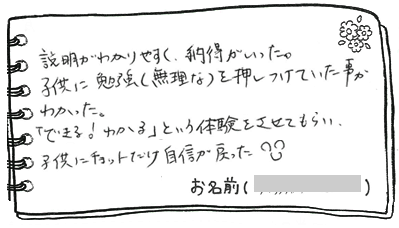 説明がわかりやすく、納得がいった。
子供に勉強(無理な)を押しつけていた事が
わかった。
「できる!わかる」という体験をさせてもらい、
子供にチョットだけ自信が戻った
お名前( )